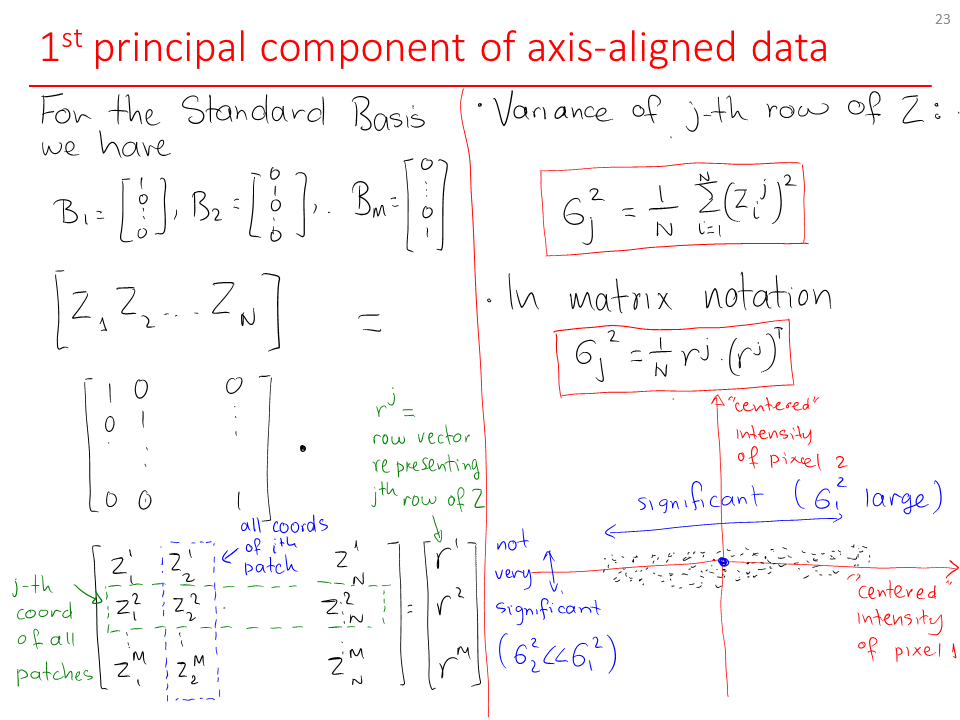 23
1st principal component of axis-aligned data
For the Standard Basis
we have
B₁ = [1 0 ⋮ 0], B₂ = [0 1 0 ⋮ 0], .. B_M = [0 ⋮ 0 1]
[Z₁ Z₂ ... Z_N] =
[1 0 0
0 1 ⋮
⋮
0 0 1] •
r^j =
row vector
representing
jth row of Z
all coords
of ith
patch
j-th
coord
of all
patches
[Z₁¹ Z₂¹ Z_N¹
Z₁² Z₂² ... Z_N²
⋮ ⋮
Z₁^M Z₂^M Z_N^M] = [r¹ r² ⋮ r^M]
· Variance of j-th row of Z:
σ_j² = 1/N Σ_{i=1}^{N} (Z_i^j)²
· In matrix notation
σ_j² = 1/N r^j · (r^j)^T
"centered"
intensity
of pixel 2
significant (σ₁² large)
not
very
significant
(σ₂² << σ₁²)
"centered"
intensity
of pixel 1